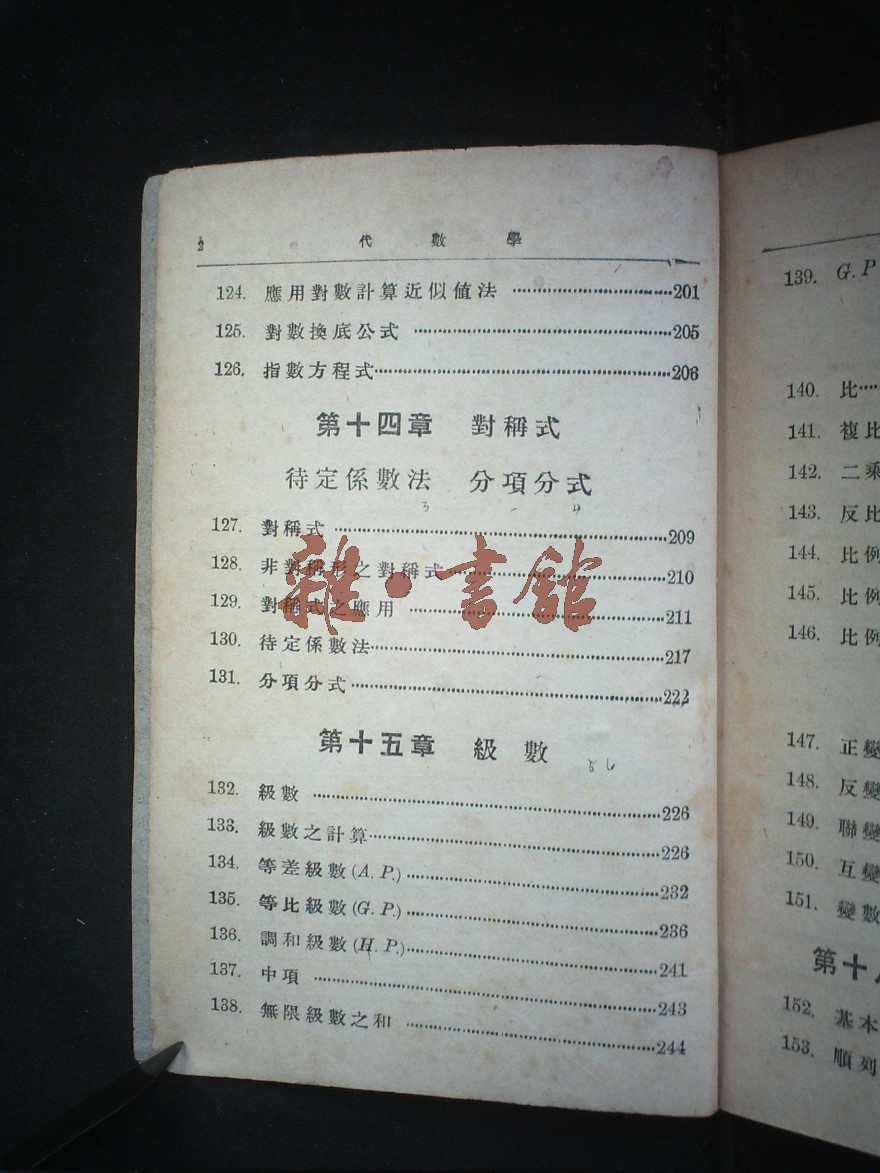 2 代數學
124. 應用對數計算近似值法 ……201
125. 對數換底公式 ……205
126. 指數方程式……206
第十四章 對稱式
待定係數法 分項分式
3 4
127. 對稱式 ……209
128. 非對稱形之對稱式……210
129. 對稱式之應用 ……211
130. 待定係數法……217
131. 分項分式……222
第十五章 級數
56
132. 級數 ……226
133. 級數之計算……226
134. 等差級數(A. P.)……232
135. 等比級數(G. P.)……236
136. 調和級數(H. P.)……241
137. 中項 ……243
138. 無限級數之和 ……244
雜·書館
139. G. P
140. 比……
141. 複比
142. 二乘
143. 反比
144. 比例
145. 比例
146. 比例
147. 正變
148. 反變
149. 聯變
150. 互變
151. 變數
第十
152. 基本
153. 順列